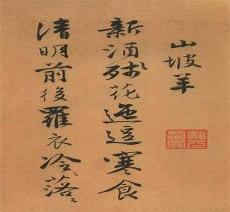 山坡羊
新酒殘花迤逗寒食
清明前後羅衣冷落